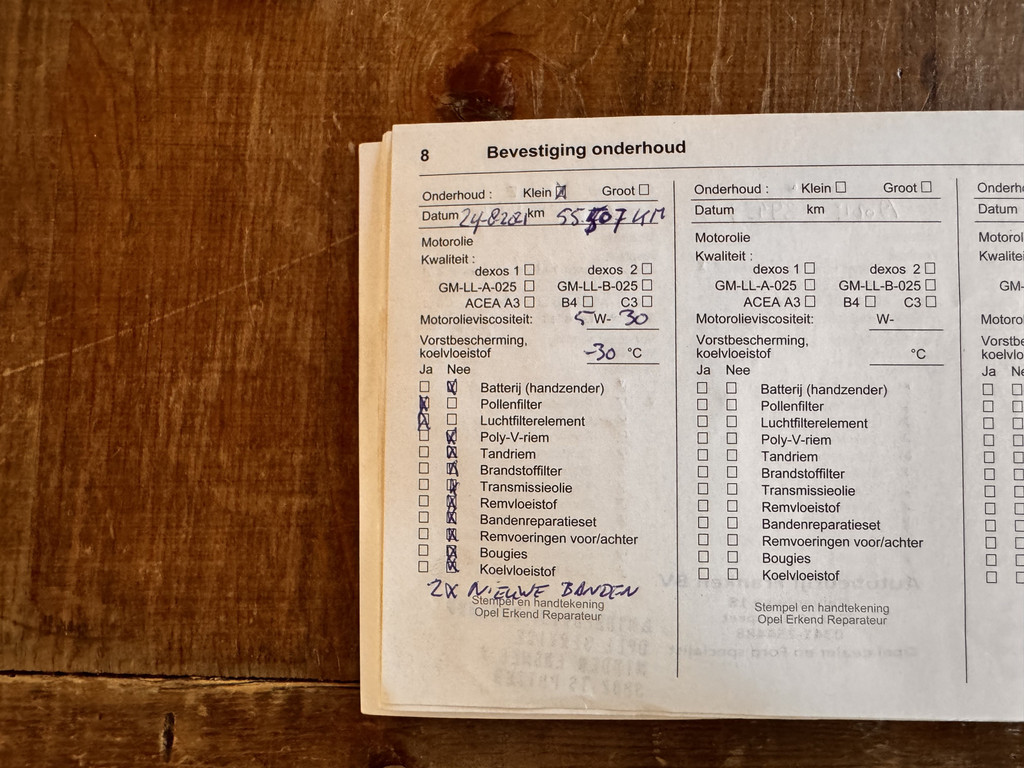 8 Bevestiging onderhoud
Onderhoud : Klein ☒ Groot ☐
Datum 24-8-2021 km KM
Motorolie
Kwaliteit :
dexos 1 ☐ dexos 2 ☐
GM-LL-A-025 ☐ GM-LL-B-025 ☐
ACEA A3 ☐ B4 ☐ C3 ☐
Motorolieviscositeit: 5 W- 30
Vorstbescherming,
koelvloeistof -30 °C
Ja Nee
☐ ☒ Batterij (handzender)
☒ ☐ Pollenfilter
☒ ☐ Luchtfilterelement
☐ ☒ Poly-V-riem
☐ ☒ Tandriem
☐ ☒ Brandstoffilter
☐ ☒ Transmissieolie
☐ ☒ Remvloeistof
☐ ☒ Bandenreparatieset
☐ ☒ Remvoeringen voor/achter
☐ ☒ Bougies
☐ ☒ Koelvloeistof
2X NIEUWE BANDEN
Stempel en handtekening
Opel Erkend Reparateur
Onderhoud : Klein ☐ Groot ☐
Datum km
Motorolie
Kwaliteit :
dexos 1 ☐ dexos 2 ☐
GM-LL-A-025 ☐ GM-LL-B-025 ☐
ACEA A3 ☐ B4 ☐ C3 ☐
Motorolieviscositeit: W-
Vorstbescherming,
koelvloeistof °C
Ja Nee
☐ ☐ Batterij (handzender)
☐ ☐ Pollenfilter
☐ ☐ Luchtfilterelement
☐ ☐ Poly-V-riem
☐ ☐ Tandriem
☐ ☐ Brandstoffilter
☐ ☐ Transmissieolie
☐ ☐ Remvloeistof
☐ ☐ Bandenreparatieset
☐ ☐ Remvoeringen voor/achter
☐ ☐ Bougies
☐ ☐ Koelvloeistof
Stempel en handtekening
Opel Erkend Reparateur
Onderh
Datum
Motorol
Kwalitei
GM-
Motorol
Vorstbe
koelvlo
Ja Ne